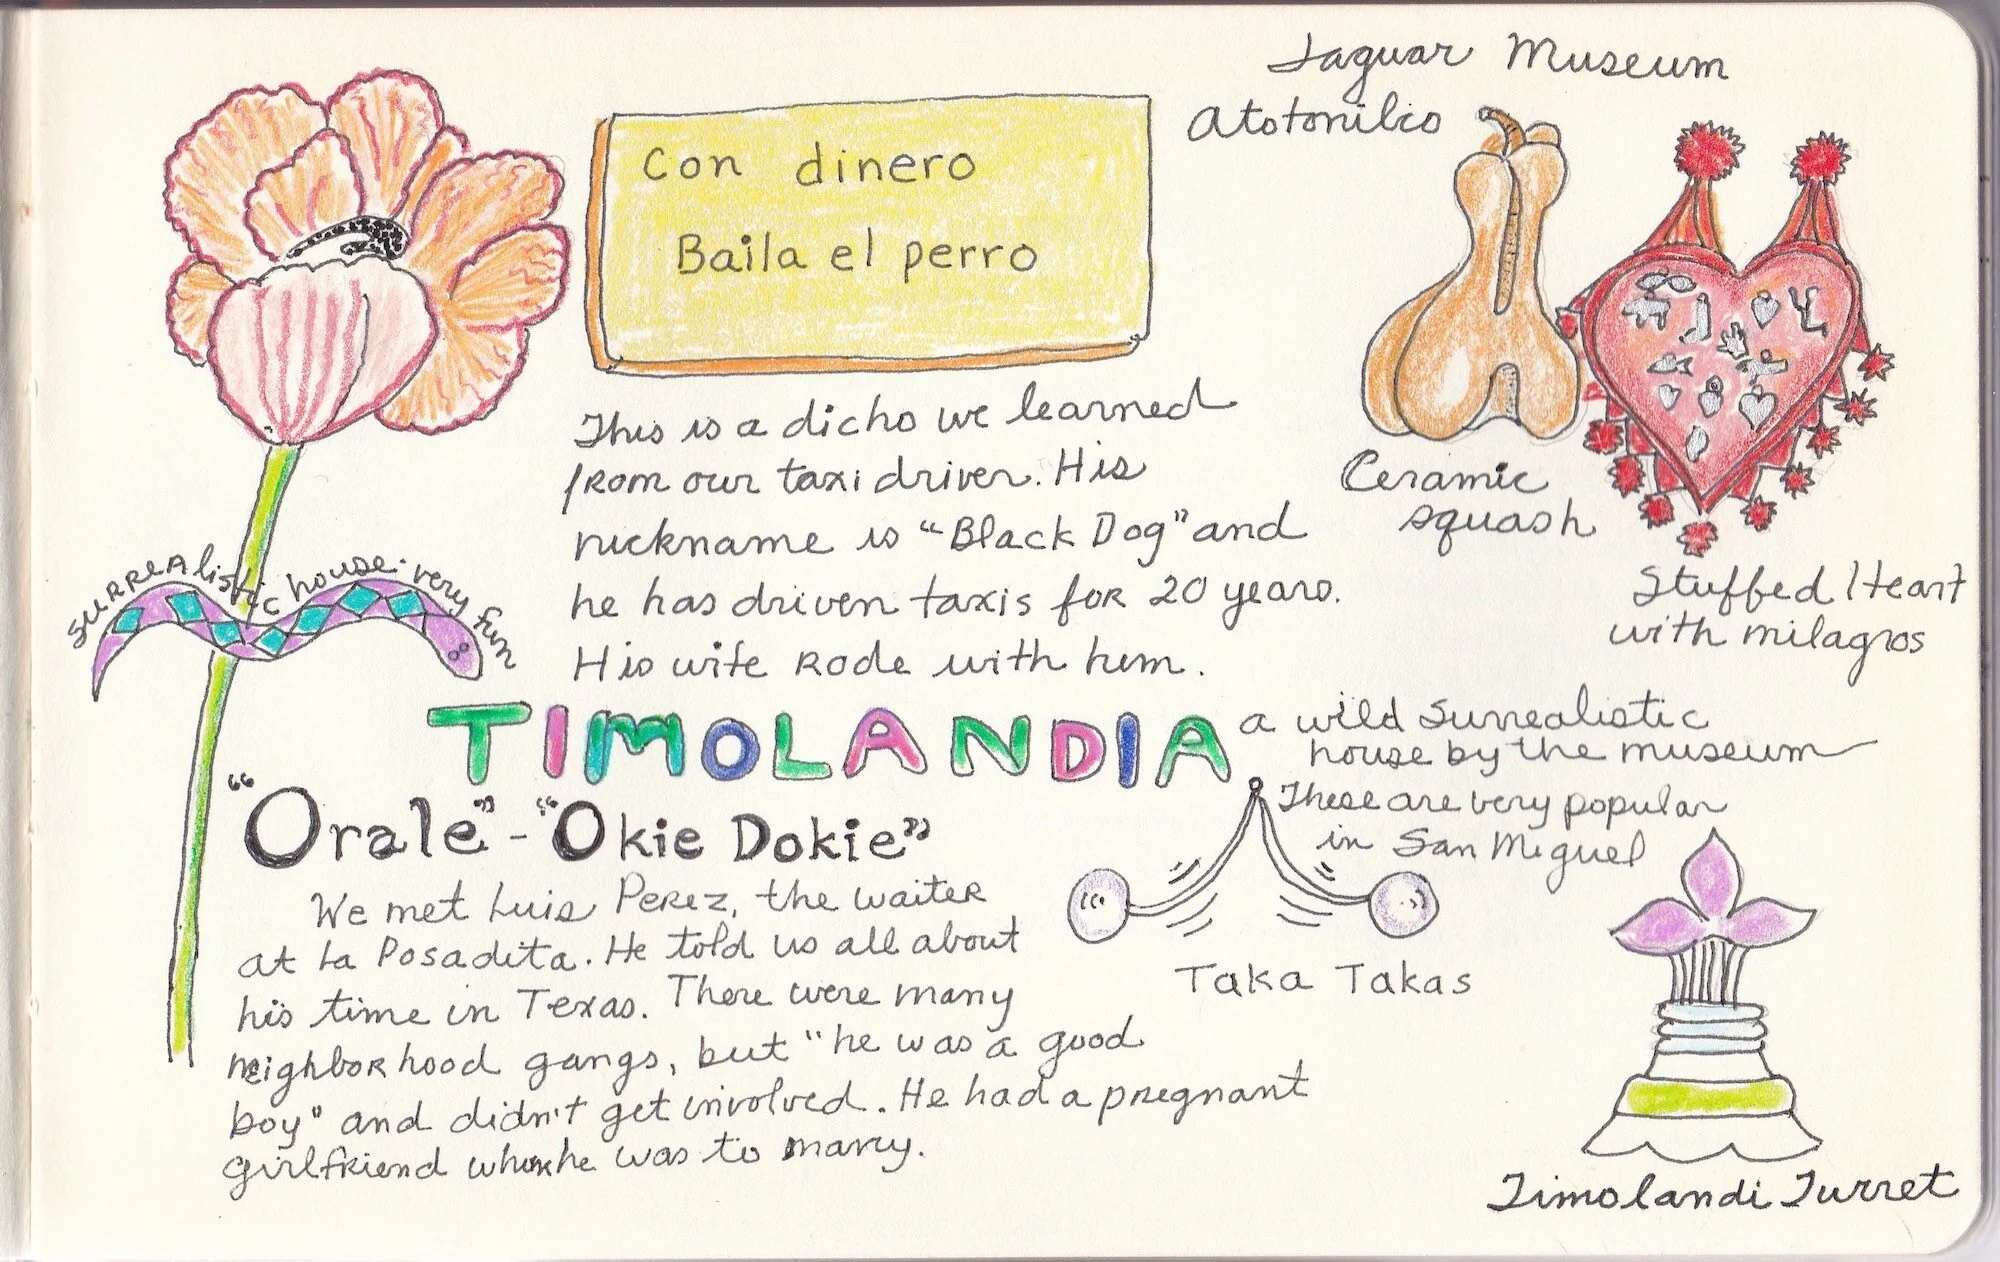 Jaguar Museum
Atotonilco
Con dinero
Baila el perro
This is a dicho we learned
from our taxi driver. His
nickname is "Black Dog" and
he has driven taxis for 20 years.
His wife rode with him.
Ceramic
squash
Stuffed Heart
with milagros
surrealistic house. very fun
TIMOLANDIA
a wild surrealistic
house by the museum
"Orale" - "Okie Dokie"
These are very popular
in San Miguel
Taka Takas
We met Luis Perez, the waiter
at La Posadita. He told us all about
his time in Texas. There were many
neighborhood gangs, but "he was a good
boy" and didn't get involved. He had a pregnant
girlfriend whom he was to marry.
Timolandi Turret